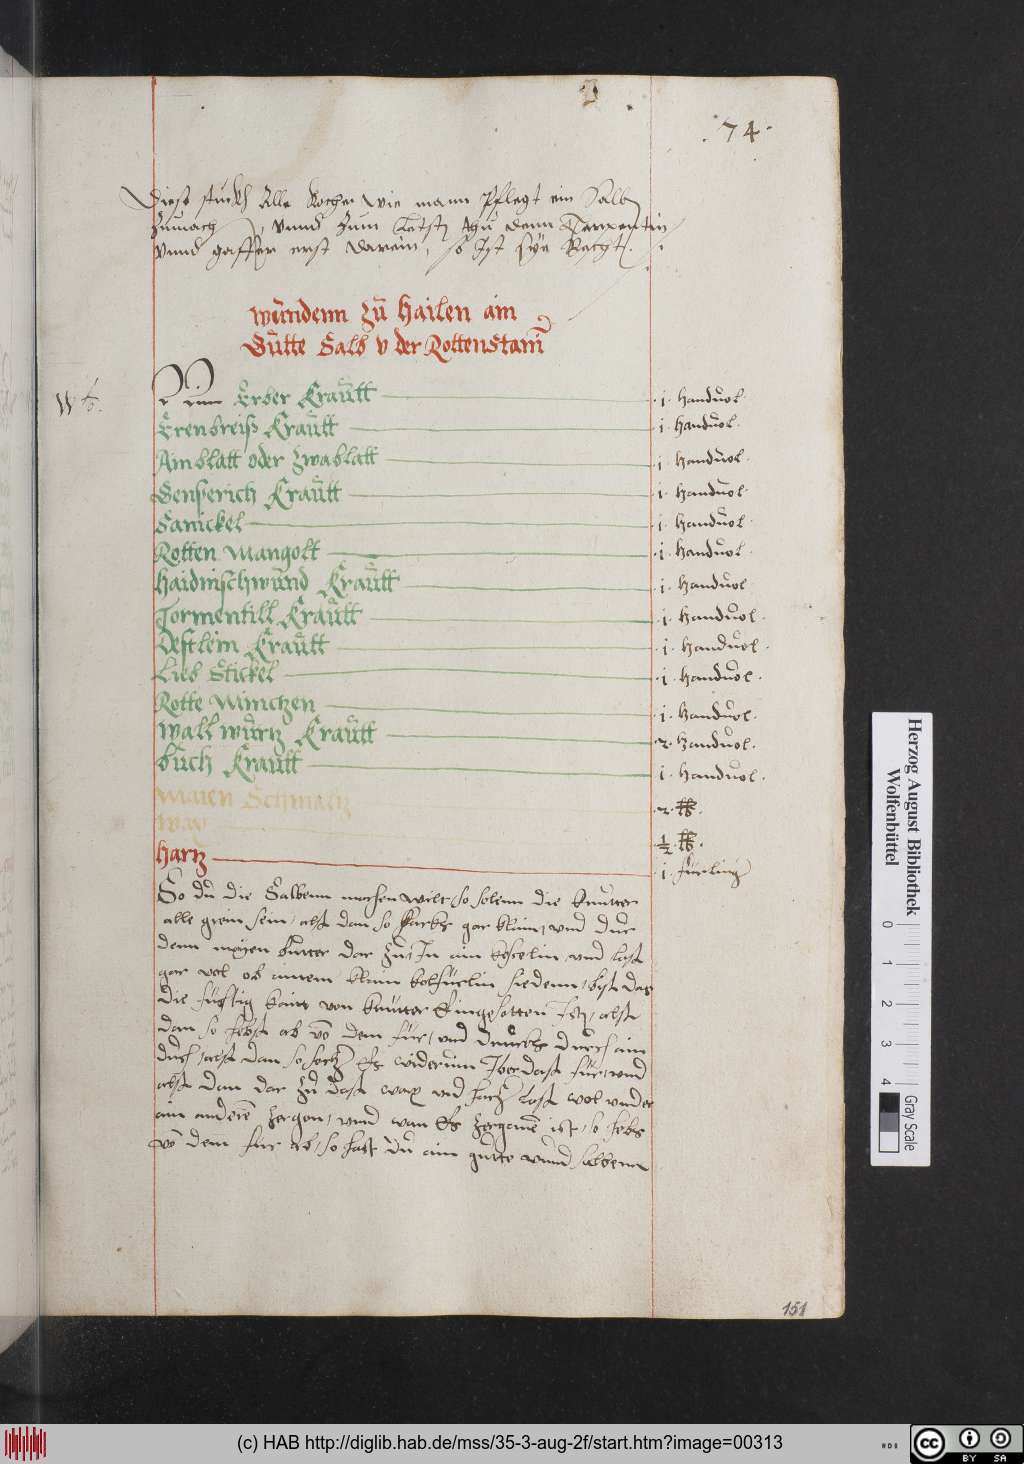 74.
Diese stuckh Alle Kocher wie mann Pflegt ein Salb
Zumach, vnnd zum Letst thu denn Terpentin
vnnd gaffer erst darein, so Ist sye Recht.
wundenn zů Hailen ain
Gůtte Salb v der Rottenstain
Nim Erber Kraütt i. handuol.
Erenbreiß Kraütt i. handuol.
Ainblatt oder zwablatt i. handuol.
Senserich Kraütt i. handuol.
Sanickel i. handuol.
Rotten Mangolt i. handuol.
Haidnischwund Kraütt i. handuol.
Tormentill Kraütt i. handuol.
Kraütt i. handuol.
Lieb Stickel i. handuol.
Rotte Mintzen i. handuol.
Wallwurtz Kraütt 2. handuol.
Buch Kraütt i. handuol.
Maien Schmaltz 2. lb.
Wax ½ lb.
Hartz i. fürling
So du die Salbenn machen wilt, so solenn die kreutter
alle gren sein, alst dan so hacks gar klain, vnd due
denn mayen butter dar zu, In ain keselin, vnd last
gar wol ob ainem klain kolfürlin siedenn, bist das
die füchtig kait von kreutter Eingesotten Ist, alst
dan so hebst ab vo dem für, vnd druckhs durch ain
duch, alst dan so setz Es widerum Iber dast für, vnd
alst dan dar zu dast wax vnd hartz last wol vnder
ain anderē zergon, vnnd wan Es zergangē ist, so hebs
vō dem für ab, so hast du ain gutte wund salbenn
151
Herzog August Bibliothek
Wolfenbüttel
0 1 2 3 4
Gray Scale
(c) HAB http://diglib.hab.de/mss/35-3-aug-2f/start.htm?image=00313
cc BY SA